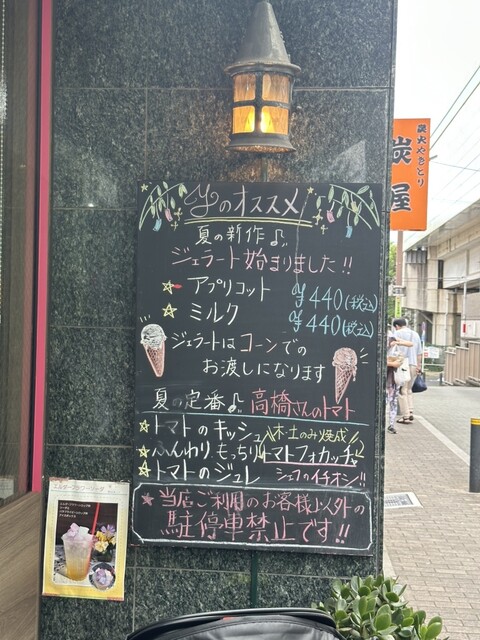 yのオススメ
夏の新作♪
ジェラート始まりました!!
☆アプリコット ¥440(税込)
☆ミルク ¥440(税込)
ジェラートはコーンでの
お渡しになります
夏の定番♪ 高橋さんのトマト
☆トマトのキッシュ 木・土のみ焼成
☆ふんわりもっちりトマトフォカッチャ
☆トマトのジュレ シェフのイチオシ!!
★当店ご利用のお客様以外の
駐停車禁止です!!
炭火やきとり
炭屋